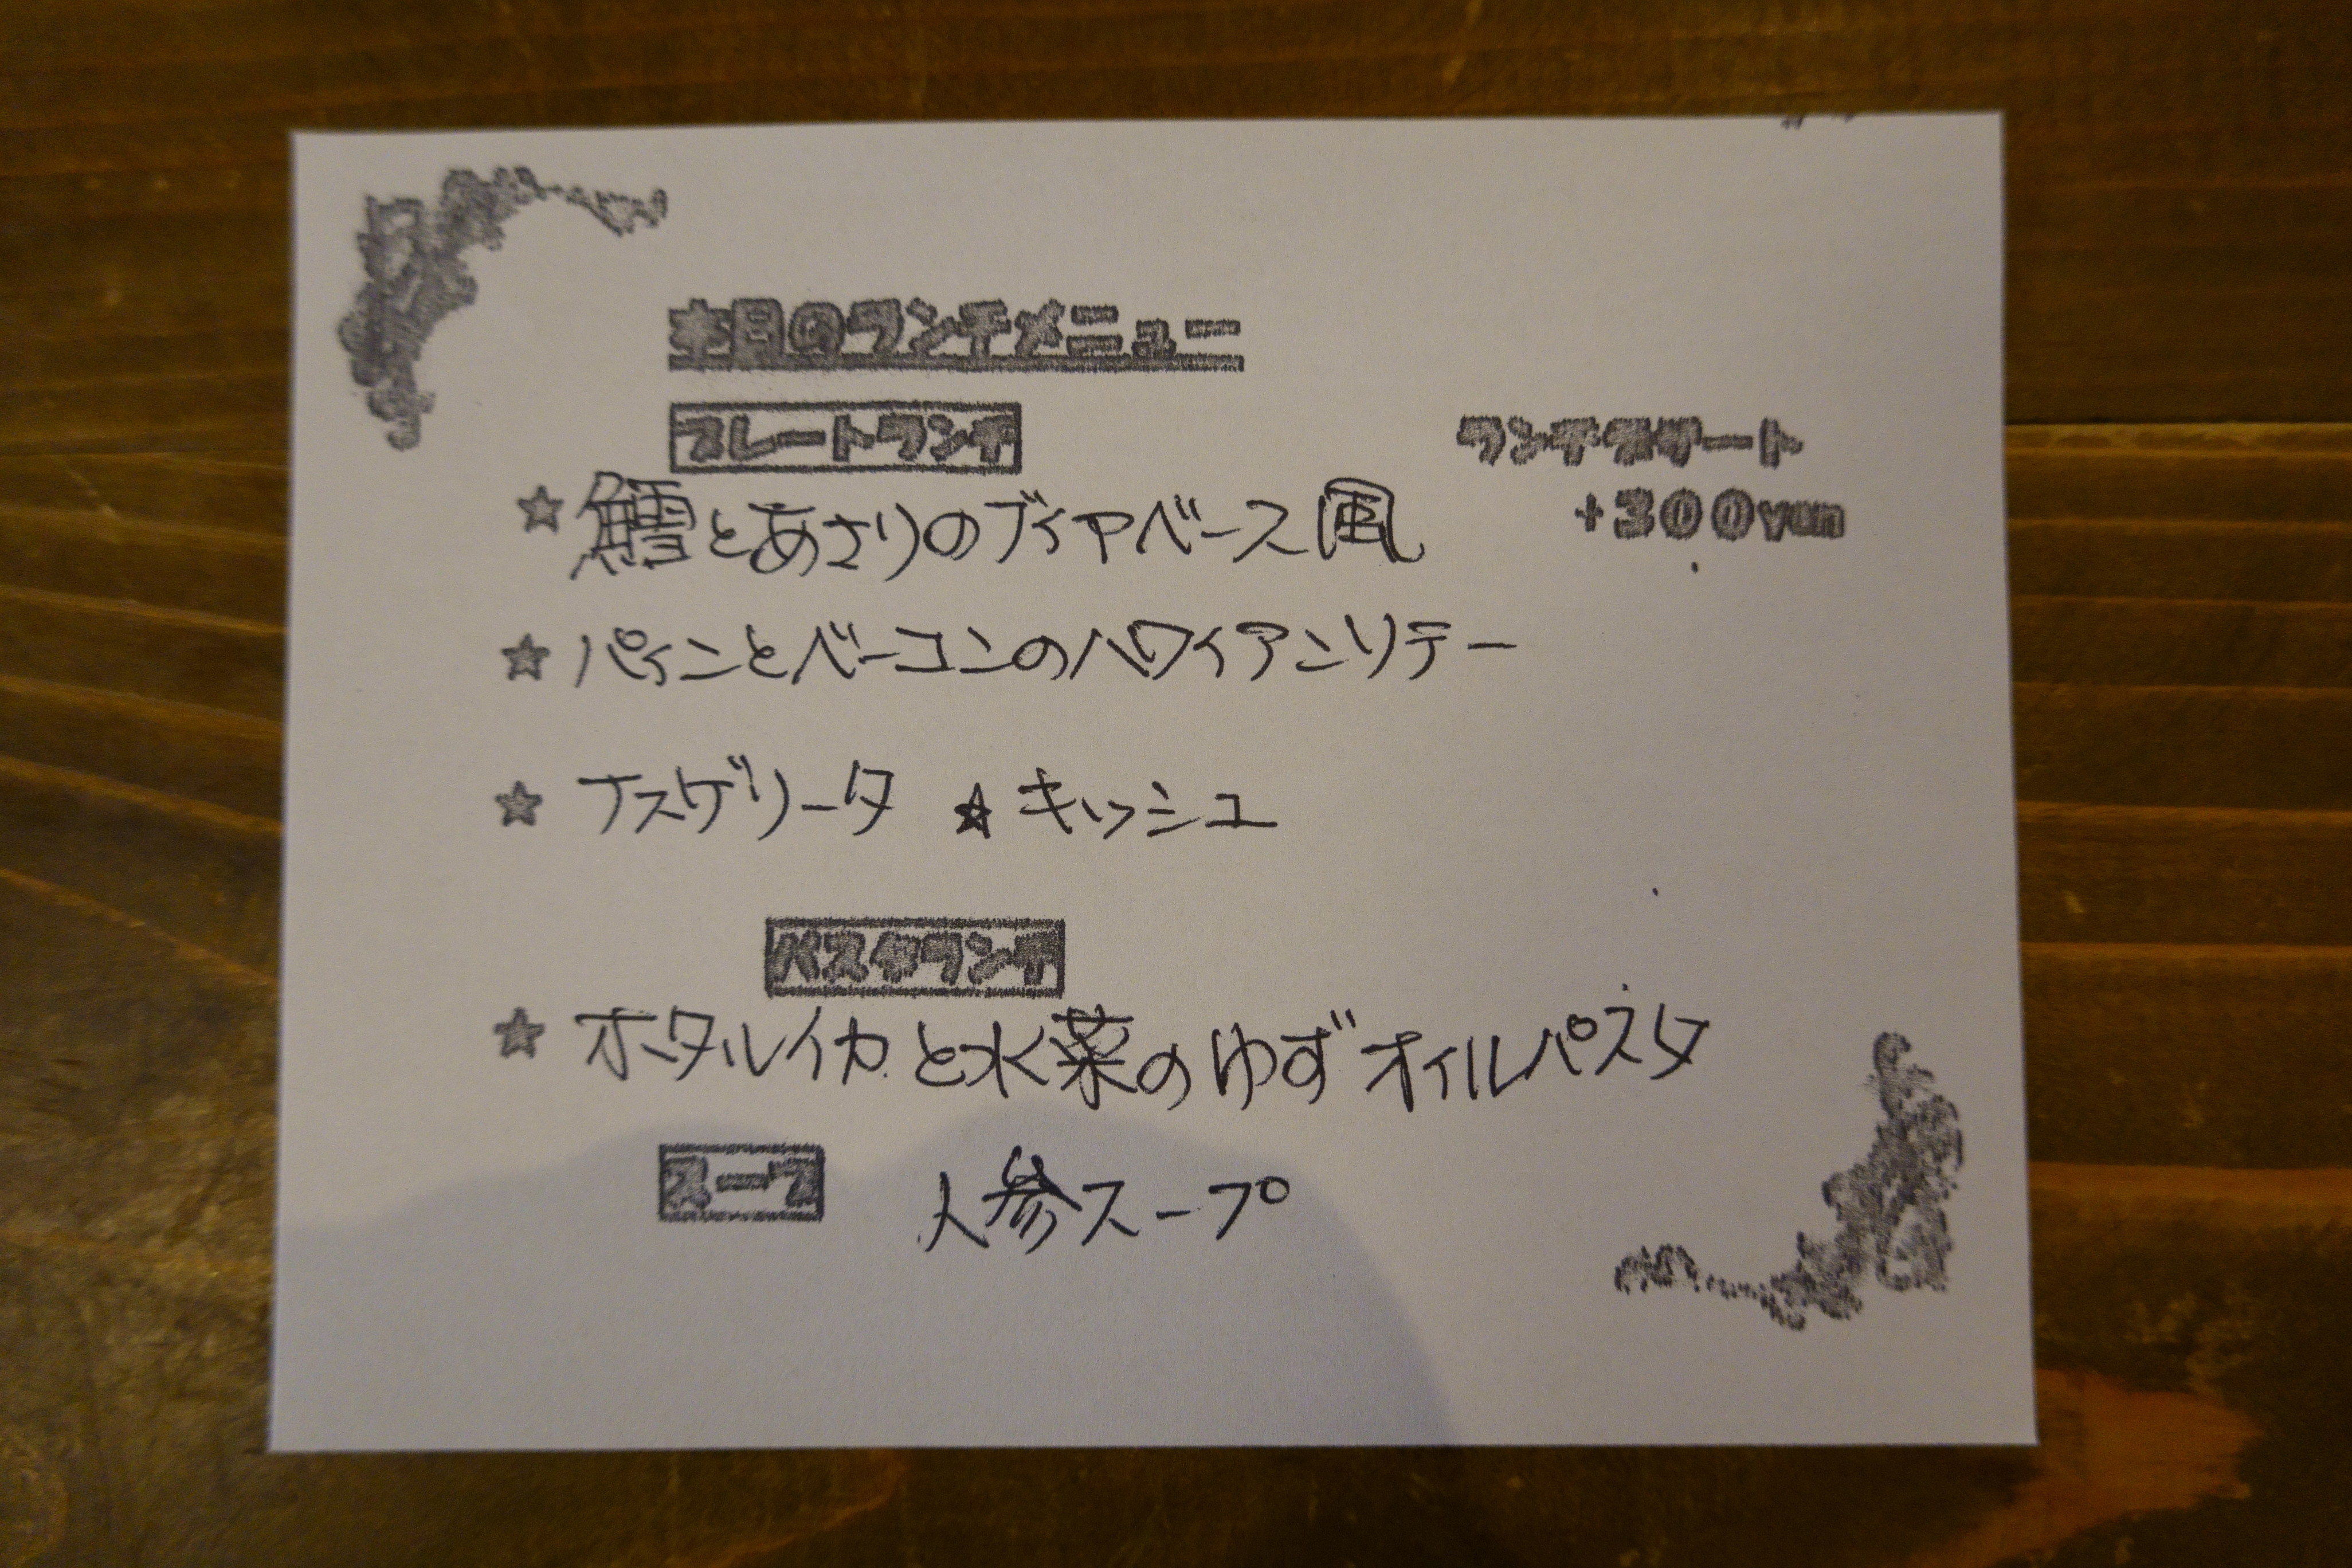 本日のランチメニュー
プレートランチ
ランチデザート
+300yen
☆鱈とあさりのブイヤベース風
☆パインとベーコンのハワイアンソテー
☆ナスゲリータ ★キッシュ
パスタランチ
☆ホタルイカと水菜のゆずオイルパスタ
スープ 人参スープ